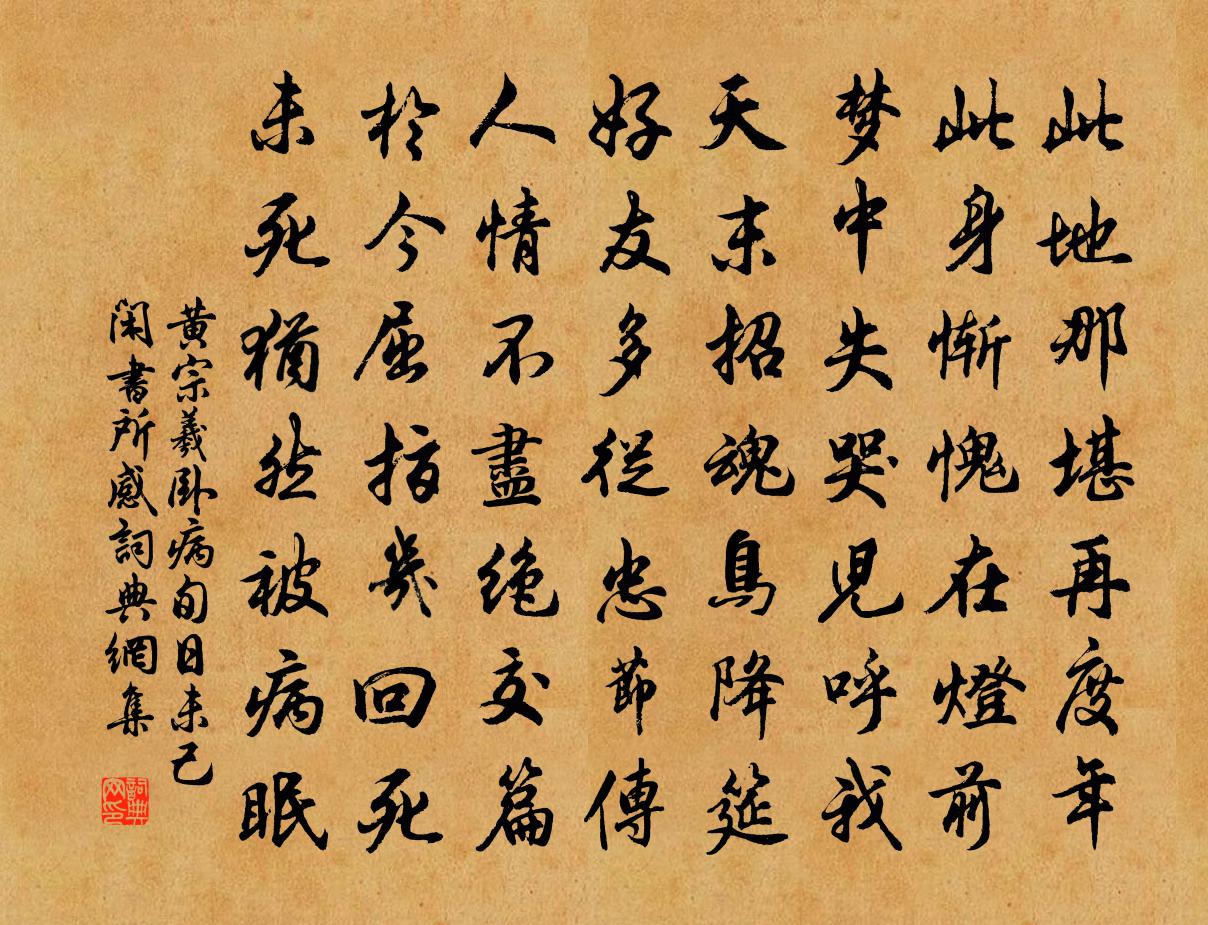 此地那堪再度年
此身慚愧在燈前
梦中失哭児呼我
天末招魂鳥降筵
好友多従忠節傳
人情不盡絶交篇
於今屈指幾回死
未死猶然被病眠
黄宗羲卧病旬日未已
閑書所感詞典網集
詞典网印